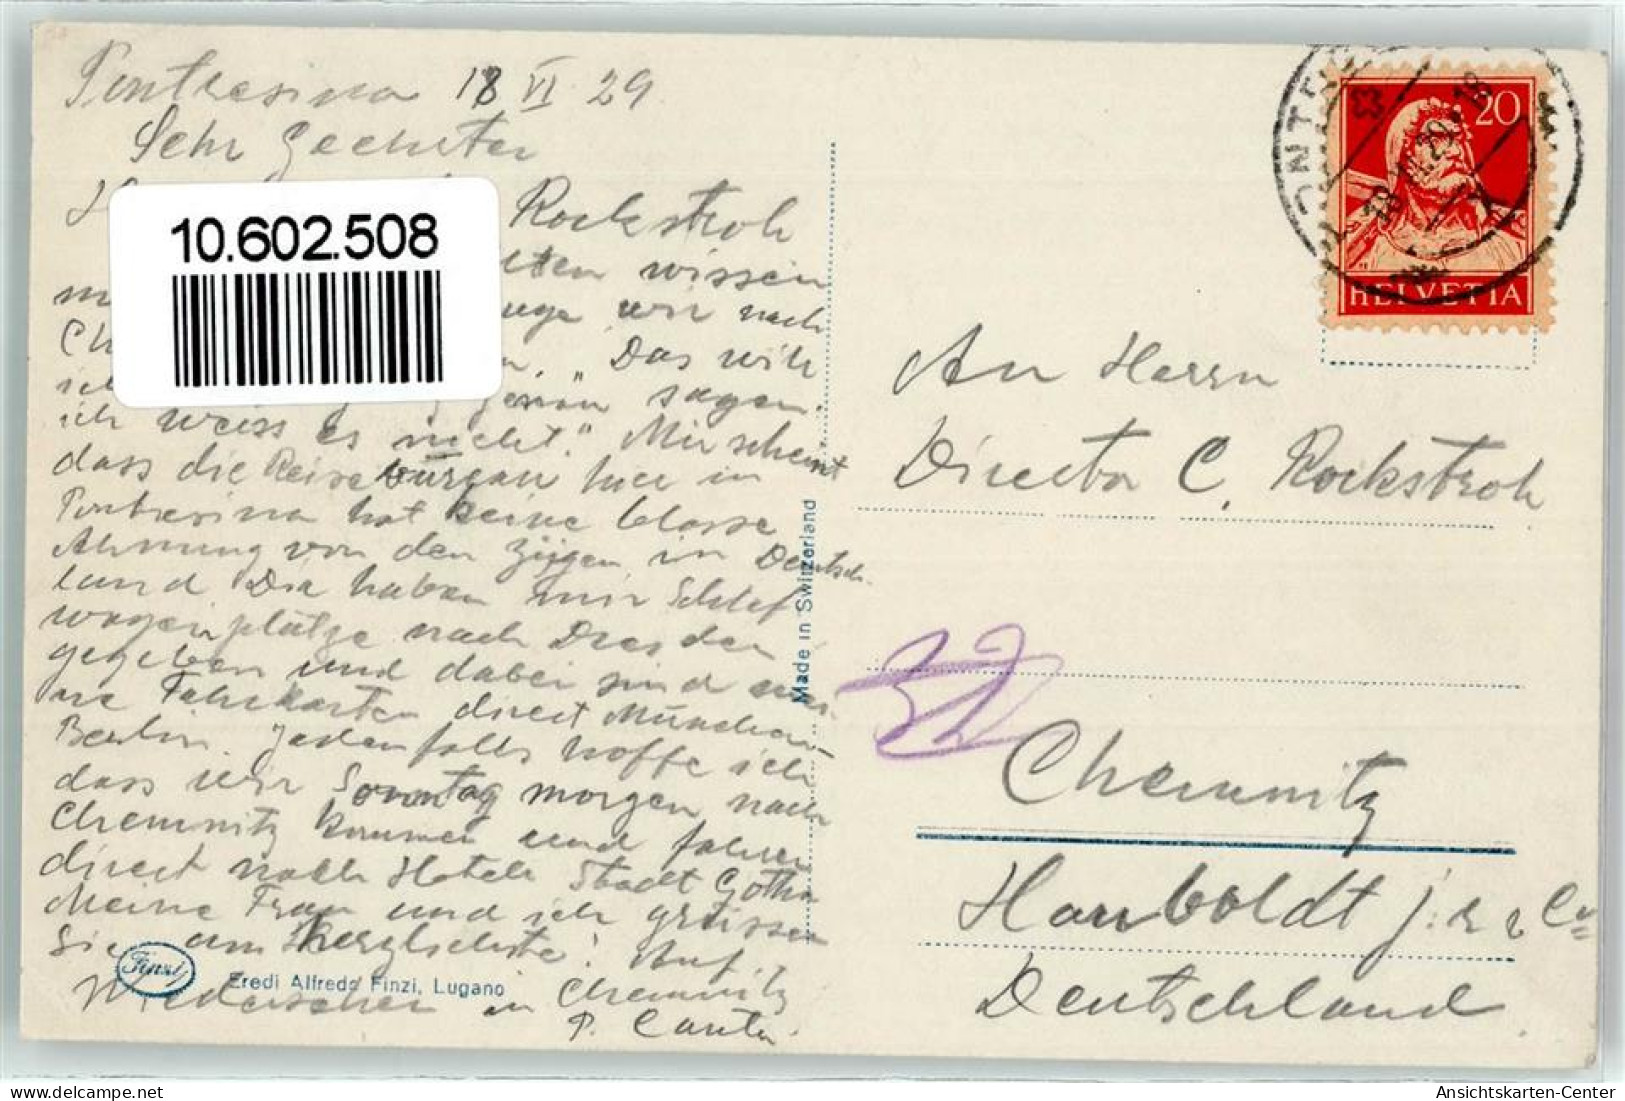 Pontresina 18 VI 29
Sehr Geehrter
Rockstroh
10.602.508
wissen
wir nach
"Das will
genau sagen.
ich weiss es nicht." Mir scheint
dass die Reisebureau hier in
Pontresina hat keine blasse
Ahnung von den Zügen in Deutsch-
land Die haben mir Schlaf
wagenplätze nach Dresden
gegeben und dabei sind
Fahrkarten direct München-
Berlin. Jedenfalls hoffe ich
dass wir Sonntag morgen nach
Chemnitz kommen und fahren
direct nach Hotel Stadt Gotha
Meine Frau und ich grüssen
Sie am herzlichste! Auf
Wiedersehen in Chemnitz
P.
Finzi
Eredi Alfredo Finzi, Lugano
Made in Switzerland
20
HELVETIA
An Herrn
Director C. Rockstroh
Chemnitz
Deutschland
www.ansichtskarten-center.com
Ansichtskarten-Center